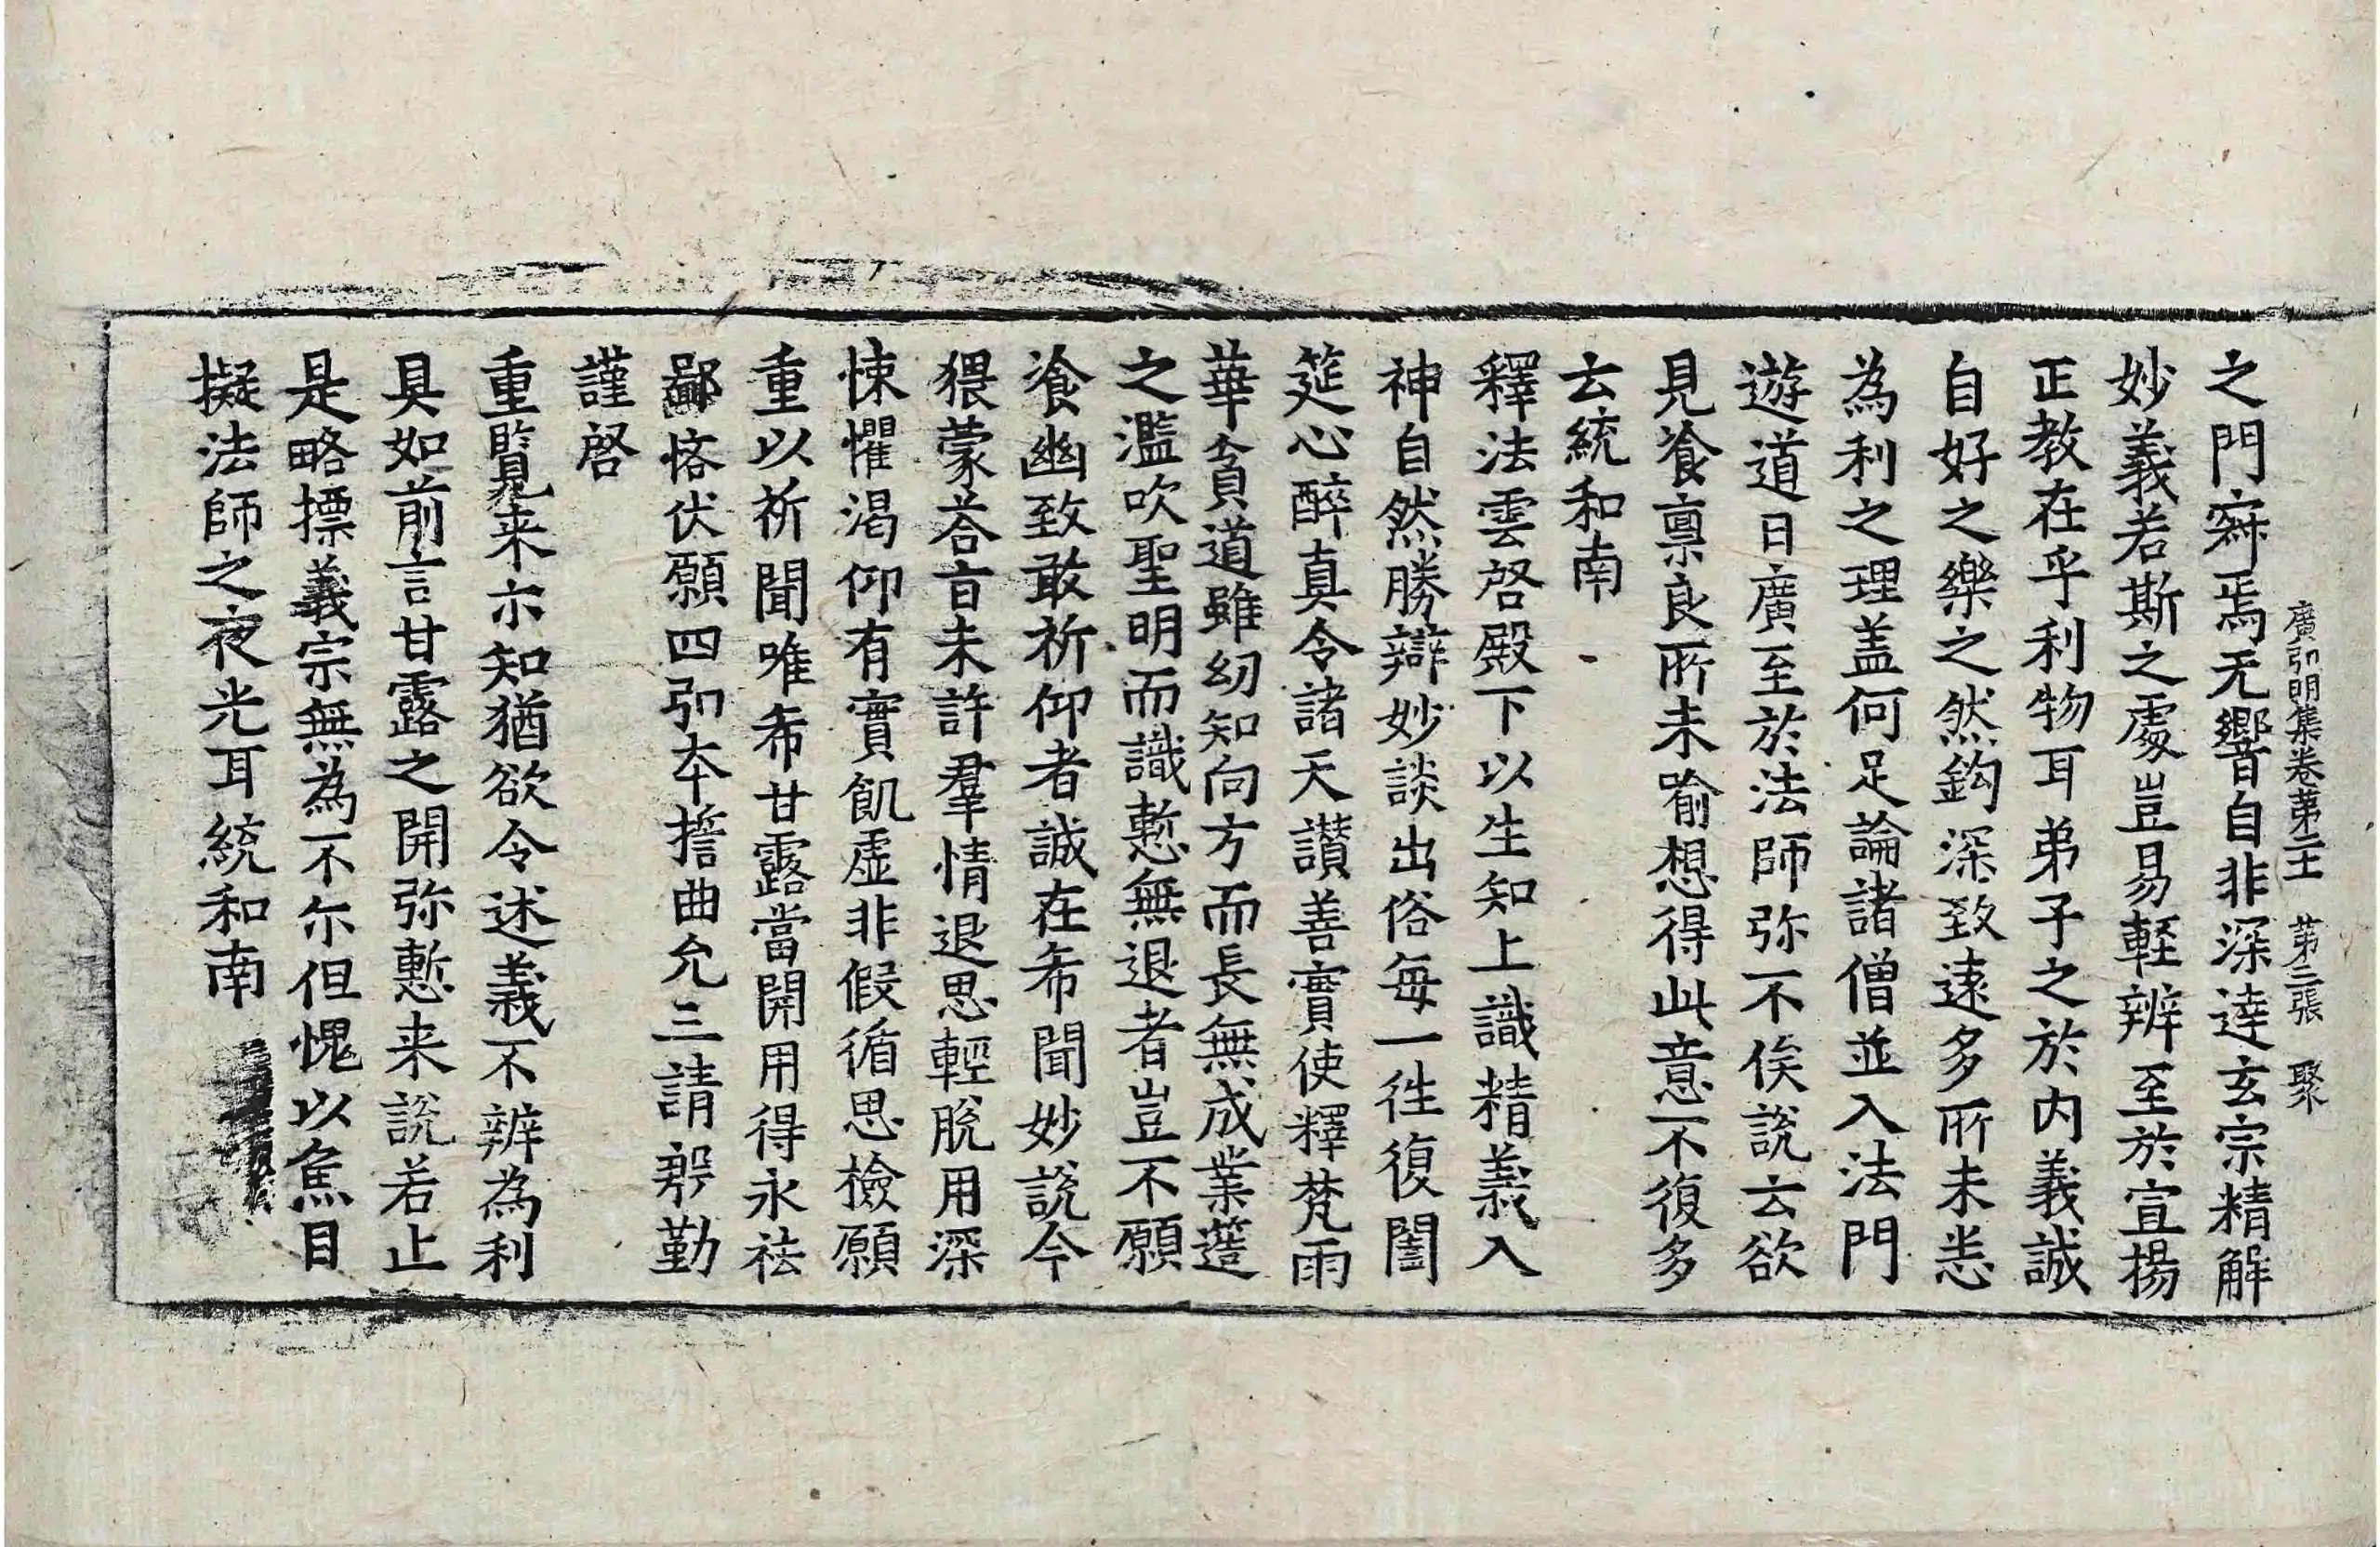 廣弘明集卷第二十一 第三張 聚
之門寂焉无響自非深達玄宗精解
妙義若斯之處豈易輕辨至於宣揚
正教在乎利物耳弟子之於內義誠
自好之樂之然鈎深致遠多所未悉
為利之理盖何足論諸僧並入法門
遊道日廣至於法師弥不俟說云欲
見飡禀良所未喻想得此意不復多
云統和南
釋法雲啓殿下以生知上識精義入
神自然勝辯妙談出俗每一往復闔
筵心醉真令諸天讚善實使釋梵雨
華貧道雖幼知向方而長無成業遥
之濫吹聖明而識慙無退者豈不願
飡幽致敢祈仰者誠在希聞妙說今
猥蒙荅旨未許羣情退思輕脫用深
悚懼渴仰有實飢虛非假循思檢願
重以祈聞唯希甘露當開用得永袪
鄙悋伏願四弘本誓曲允三請慇勤
謹啓
重覧来示知猶欲令述義不辨為利
具如前言甘露之開弥慙来說若止
是略摽義宗無為不尔但愧以魚目
擬法師之夜光耳統和南